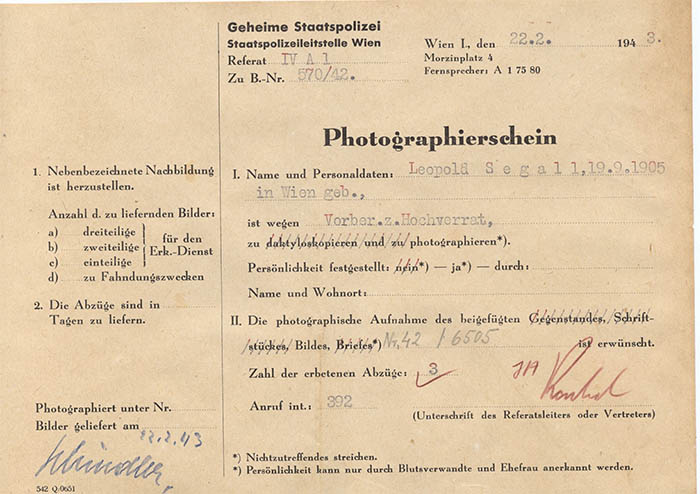 Geheime Staatspolizei
Staatspolizeileitstelle Wien
Referat IV A 1
Zu B.-Nr. 570/42.
Wien I., den 22.2. 1943.
Morzinplatz 4
Fernsprecher: A 1 75 80
Photographierschein
1. Nebenbezeichnete Nachbildung
ist herzustellen.
Anzahl d. zu liefernden Bilder:
a) dreiteilige
b) zweiteilige
c) einteilige
für den
Erk.-Dienst
d) zu Fahndungszwecken
2. Die Abzüge sind in
Tagen zu liefern.
Photographiert unter Nr.
Bilder geliefert am
22.2.43
542 Q/0651
I. Name und Personaldaten: Leopold Segall, 19.9.1905
in Wien geb.,
ist wegen Vorber.z.Hochverrat,
zu daktyloskopieren und zu photographieren*).
Persönlichkeit festgestellt: nein*) — ja*) — durch:
Name und Wohnort:
II. Die photographische Aufnahme des beigefügten Gegenstandes, Schrift-
stückes, Bildes, Briefes*) Nr. 42 / 6505 ist erwünscht.
Zahl der erbetenen Abzüge: 3
Anruf int.: 392
(Unterschrift des Referatsleiters oder Vertreters)
*) Nichtzutreffendes streichen.
*) Persönlichkeit kann nur durch Blutsverwandte und Ehefrau anerkannt werden.